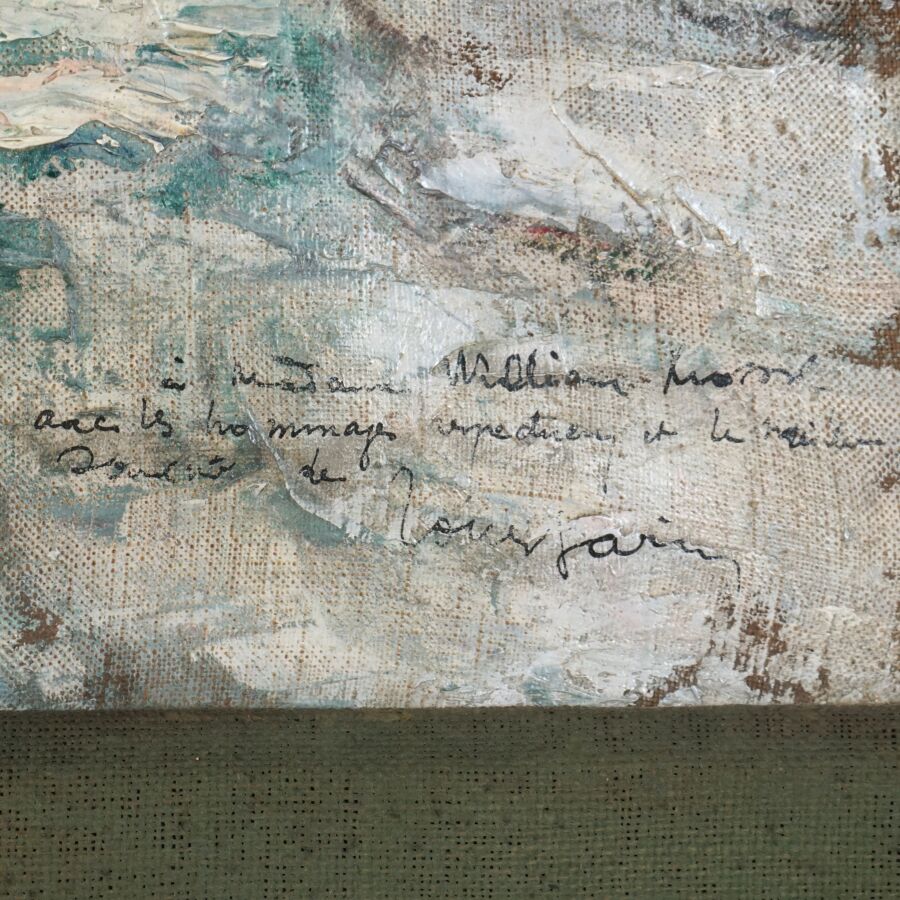 à Madame William
avec les hommages respectueux et le meilleur
Souvenir de